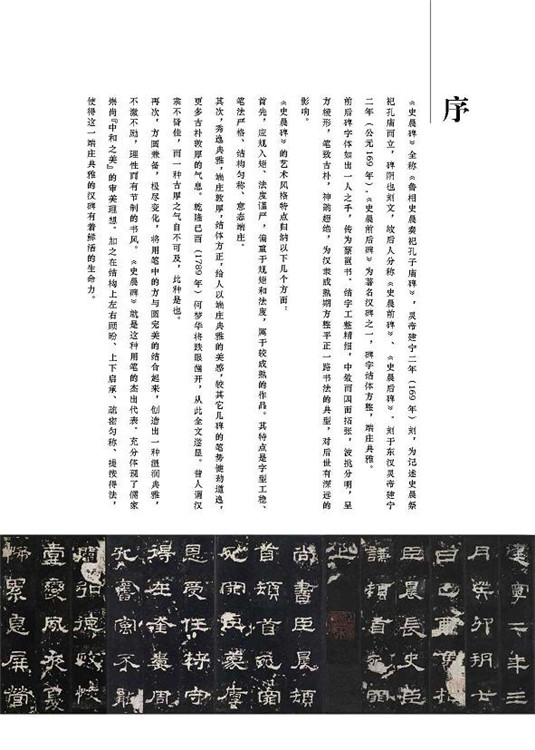 序
《史晨碑》全称《鲁相史晨奏祀孔子庙碑》，灵帝建宁二年（169年）刻，为记述史晨祭
祀孔庙而立，碑阴也刻文，故后人分称《史晨前碑》、《史晨后碑》。刻于东汉灵帝建宁
二年（公元169年）。《史晨前后碑》为著名汉碑之一，碑字结体方整，端庄典雅。
前后碑字体如出一人之手，传为蔡邕书。结字工整精细，中敛而四面拓张，波挑分明，呈
方棱形，笔致古朴，神韵超绝，为汉隶成熟期方整平正一路书法的典型，对后世有深远的
影响。
《史晨碑》的艺术风格特点归纳以下几个方面：
首先，应规入矩、法度谨严，偏重于规矩和法度，属于较成熟的作品。其特点是字型工稳、
笔法严格、结构匀称、意态端庄。
其次，秀逸典雅，端庄敦厚，结体方正，给人以端庄典雅的美感，较其它几碑的笔势健劲遒逸，
更多古朴敦厚的气息。乾隆己酉（1789年）何梦华将趺眼凿开，从此全文遂显。昔人谓汉
隶不皆佳，而一种古厚之气自不可及，此种是也。
再次，方圆兼备，极尽变化，将用笔中的方与圆完美的结合起来，创造出一种温润典雅，
不激不励，理性而有节制的书风。《史晨碑》就是这种用笔的杰出代表。充分体现了儒家
崇尚『中和之美』的审美理想。加之在结构上左右顾盼、上下启承、疏密匀称、提按得法，
使得这一端庄典雅的汉碑有着鲜活的生命力。
建寧二年三
月癸卯朔七
日己酉魯相
臣晨長史臣
謙頓首死罪
上
尚書臣晨頓
首頓首死罪
死罪臣蒙厚
恩受任符守
得在奎婁周
孔舊寓不能
闡弘德政恢
壹變夙夜憂
怖累息屏營